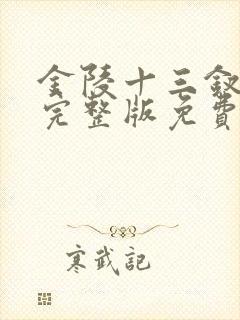 金陵十三釵
完整版免費
寒武記